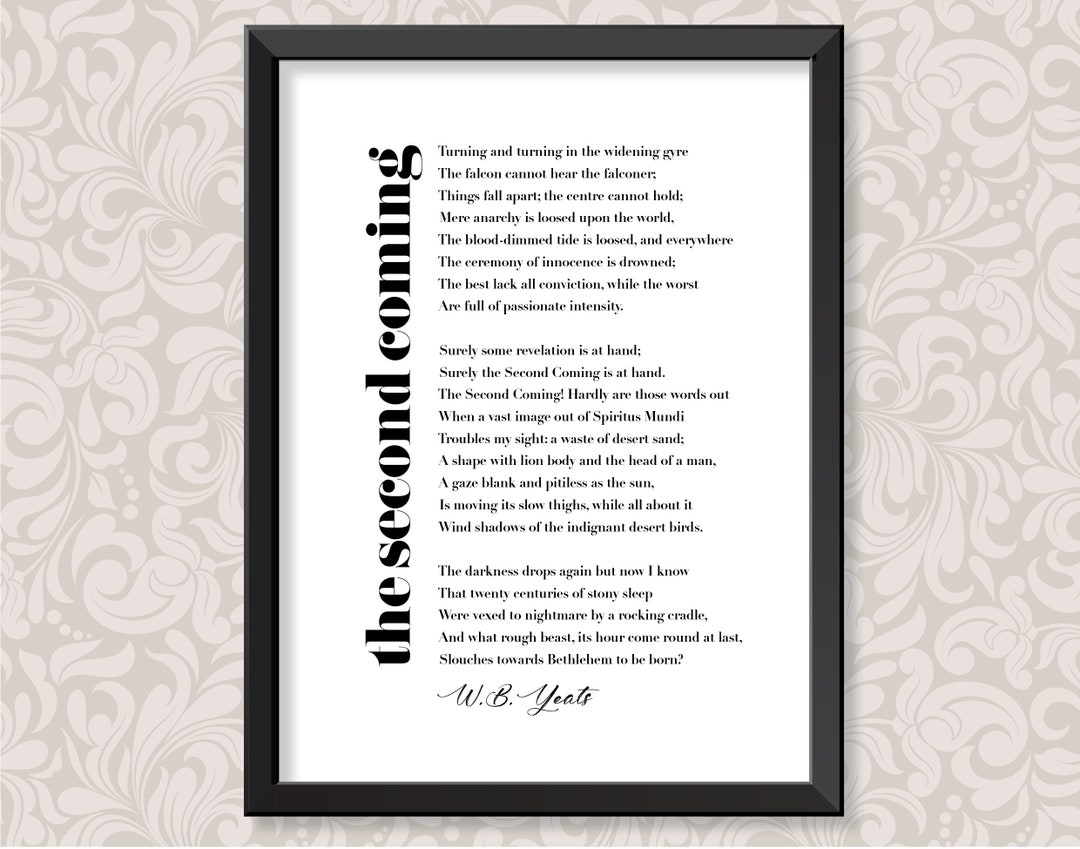 the second coming
Turning and turning in the widening gyre
The falcon cannot hear the falconer;
Things fall apart; the centre cannot hold;
Mere anarchy is loosed upon the world,
The blood-dimmed tide is loosed, and everywhere
The ceremony of innocence is drowned;
The best lack all conviction, while the worst
Are full of passionate intensity.

Surely some revelation is at hand;
Surely the Second Coming is at hand.
The Second Coming! Hardly are those words out
When a vast image out of Spiritus Mundi
Troubles my sight: a waste of desert sand;
A shape with lion body and the head of a man,
A gaze blank and pitiless as the sun,
Is moving its slow thighs, while all about it
Wind shadows of the indignant desert birds.

The darkness drops again but now I know
That twenty centuries of stony sleep
Were vexed to nightmare by a rocking cradle,
And what rough beast, its hour come round at last,
Slouches towards Bethlehem to be born?
W.B. Yeats